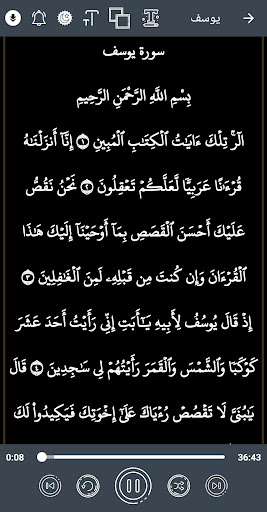 يوسف
سورة يوسف
بِسْمِ اللَّهِ الرَّحْمَٰنِ الرَّحِيمِ
الٓرۚ تِلْكَ ءَايَٰتُ ٱلْكِتَٰبِ ٱلْمُبِينِ ١ إِنَّآ أَنزَلْنَٰهُ
قُرْءَٰنًا عَرَبِيًّا لَّعَلَّكُمْ تَعْقِلُونَ ٢ نَحْنُ نَقُصُّ
عَلَيْكَ أَحْسَنَ ٱلْقَصَصِ بِمَآ أَوْحَيْنَآ إِلَيْكَ هَٰذَا
ٱلْقُرْءَانَ وَإِن كُنتَ مِن قَبْلِهِۦ لَمِنَ ٱلْغَٰفِلِينَ ٣
إِذْ قَالَ يُوسُفُ لِأَبِيهِ يَٰٓأَبَتِ إِنِّي رَأَيْتُ أَحَدَ عَشَرَ
كَوْكَبًا وَٱلشَّمْسَ وَٱلْقَمَرَ رَأَيْتُهُمْ لِي سَٰجِدِينَ ٤ قَالَ
يَٰبُنَيَّ لَا تَقْصُصْ رُءْيَاكَ عَلَىٰٓ إِخْوَتِكَ فَيَكِيدُوا۟ لَكَ
0:08 36:43